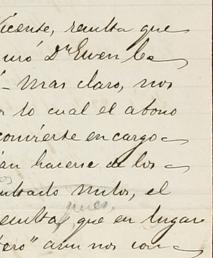 Vicente, resulta que
miró Dn Ewen les
- mas claro, nos
lo cual el abono
convierte en cargo
an hacerse de los
ultado nulos, el
pues,
resulta que en lugar
ero" aun nos con